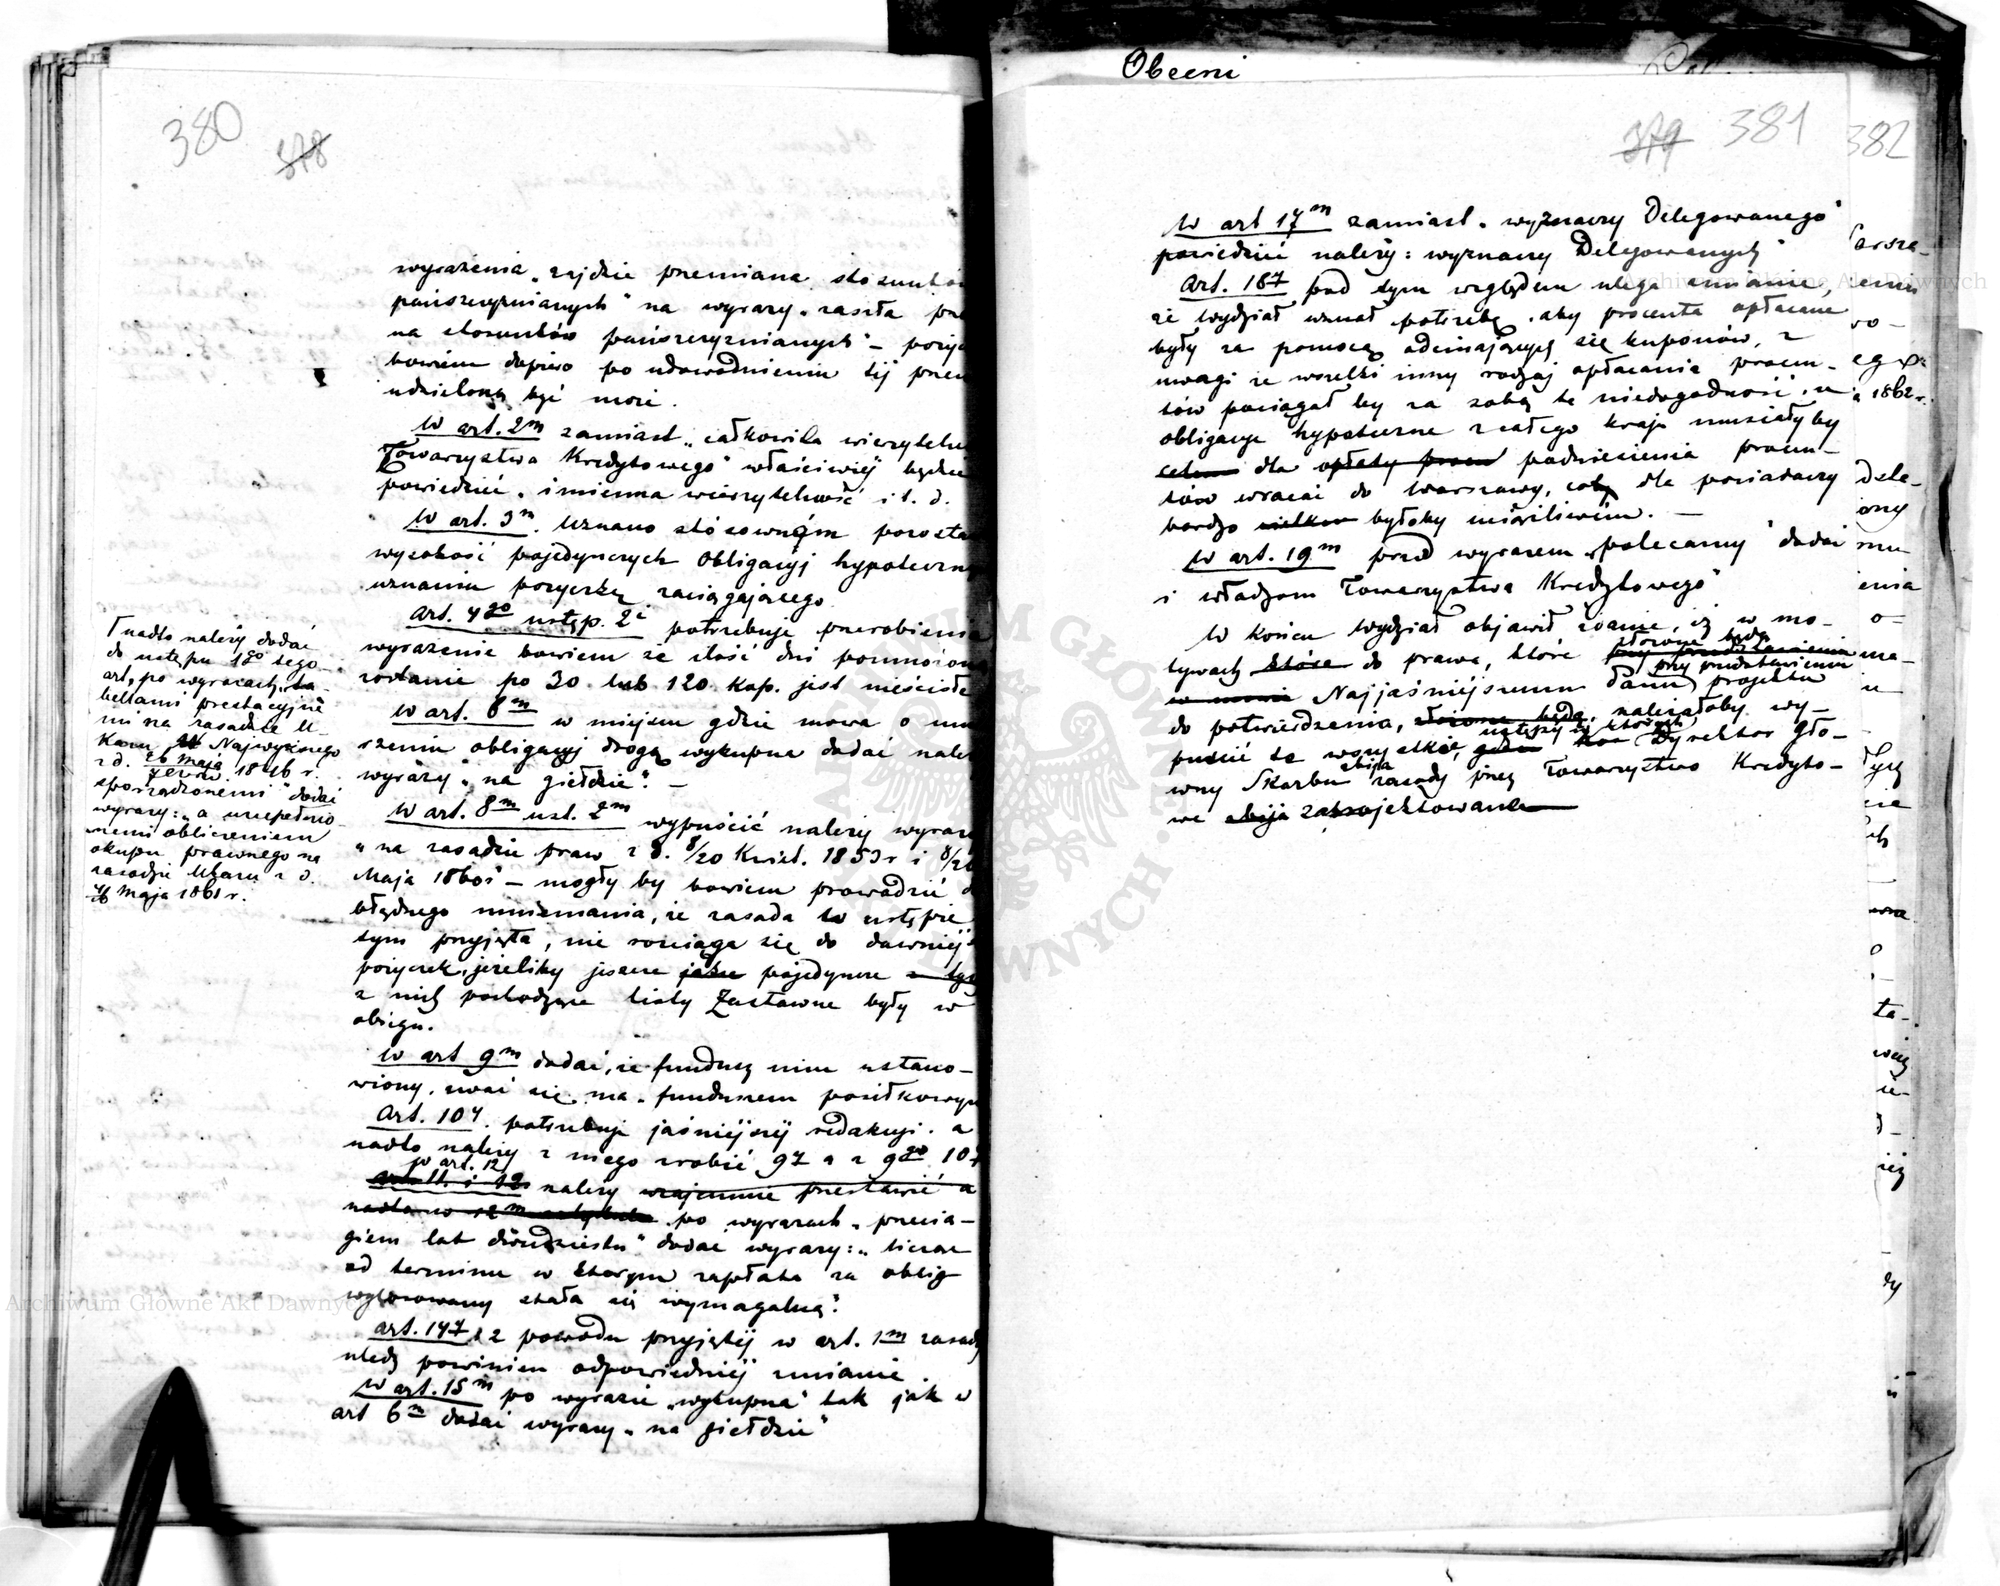 380
378
wyrażenia „zajdzie przemiana stosunków
pańszczyznianych" na wyrazy „zaszła prze
na stosunków pańszczyznianych" – pożyc
bowiem dopiero po udowodnieniu tej prze
udzieloną być może.
W art. 2m zamiast „całkowita wierzyteln
Towarzystwa Kredytowego" właściwiej będzie
powiedzieć „imienna wierzytelność i t. d.
W art. 3m. Uznano stósownem pozosta
wysokość pojedynczych Obligacyj hypoteczn
uznaniu pożyczkę zaciągającego.
Art. 4go ustęp. 2i potrzebuje przerobienia
wyrażenie bowiem że ilość dni pomnożoną
zostanie po 30 lub 120 kop. jest nieścisłe
W art. 6m w miejscu gdzie mowa o umo
rzeniu obligacyj drogą wykupna dodać nale
wyrazy „na giełdzie". –
W art. 8m ust. 2m wypuścić należy wyraz
„na zasadzie praw z d. 8/20 Kwiet. 1853 r i 8/20
Maja 1860" – mogły by bowiem prowadzić d
błędnego mniemania, że zasada w ustępie
tym przyjęta, nie rozciąga się do dawniej
pożyczek, jeżeliby jeszcze jakie pojedyncze z tych
z nich pochodzące Listy Zastawne były w
obiegu.
W art 9m dodać, że fundusz nim ustano–
wiony, zwać się ma „funduszem posiłkowym
Art. 10y. potrzebuje jaśniejszej redakcyi. a
nadto należy z niego zrobić 9y a z 9go 10y
w art. 12
art. 11. i 12 należy wzajemnie przestawić a
nadto w 12m artykule po wyrazach „przecią–
giem lat dwudziestu" dodać wyrazy: „licząc
od terminu w którym zapłata za oblig
wylosowany stała się wymagalną".
Art. 14y z powodu przyjętej w art. 1m zasady
uledz powinien odpowiedniej zmianie.
W art. 15m po wyrazie „wykupna" tak jak w
art 6m dodać wyrazy „na giełdzie"
Γ nadto należy dodać
do ustępu 1go tego
art, po wyrazach „ta–
bellami prestacyjne
mi na zasadzie U–
kazu Najwyższego
z d. 26 Maja / 7 Czerw. 1846 r.
sporządzonemi" dodać
wyrazy: „a uzupełnio–
nemi obliczeniem
okupu prawnego na
zasadzie Ukazu z d.
4/16 Maja 1861 r.
Obecni
379
381
382
W art 17m zamiast „wyznaczy Delegowanego"
powiedzieć należy: wyznaczy Delegowanych"
Art. 18y pod tym względem ulega zmianie,
że wydział uznał potrzebę, aby procenta opłacane
były za pomocą odcinających się kuponów, z
uwagi że wszelki inny rodzaj opłacania procen–
tów pociągał by za sobą tę niedogodność, że
obligacye hypoteczne z całego kraju musiałyby
celem dla opłaty procen podniesienia procen–
tów wracać do Warszawy, coby dla posiadaczy
bardzo wielkem byłoby uciążliwem. –
W art. 19m przed wyrazem „polecamy" dodać
i władzom Towarzystwa Kredytowego"
W końcu Wydział objawił zdanie, iż w mo–
złożone będą
tywach które do prawa, które przy przedstawieniu
przy przedstawieniu
Najjaśniejszemu Panu projektu
do potwierdzenia, złożone będą, należałoby wy–
ustępy w których
puścić te wszystkie, gdzie Dyrektor Gło–
zbija
wny Skarbu zasady przez Towarzystwo Kredyto–
we zbija zaprojektowane